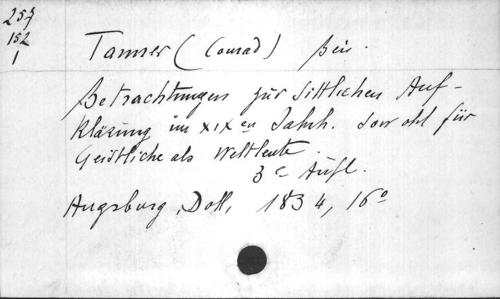 257
152
1
Tanner (Conrad)
Betrachtungen zur Sittlichen Auf-
klärung im XIXen Jahrh. sowohl für
Geistliche als Weltleute.
3e Aufl.
Augsburg, Doll, 1834, 16o